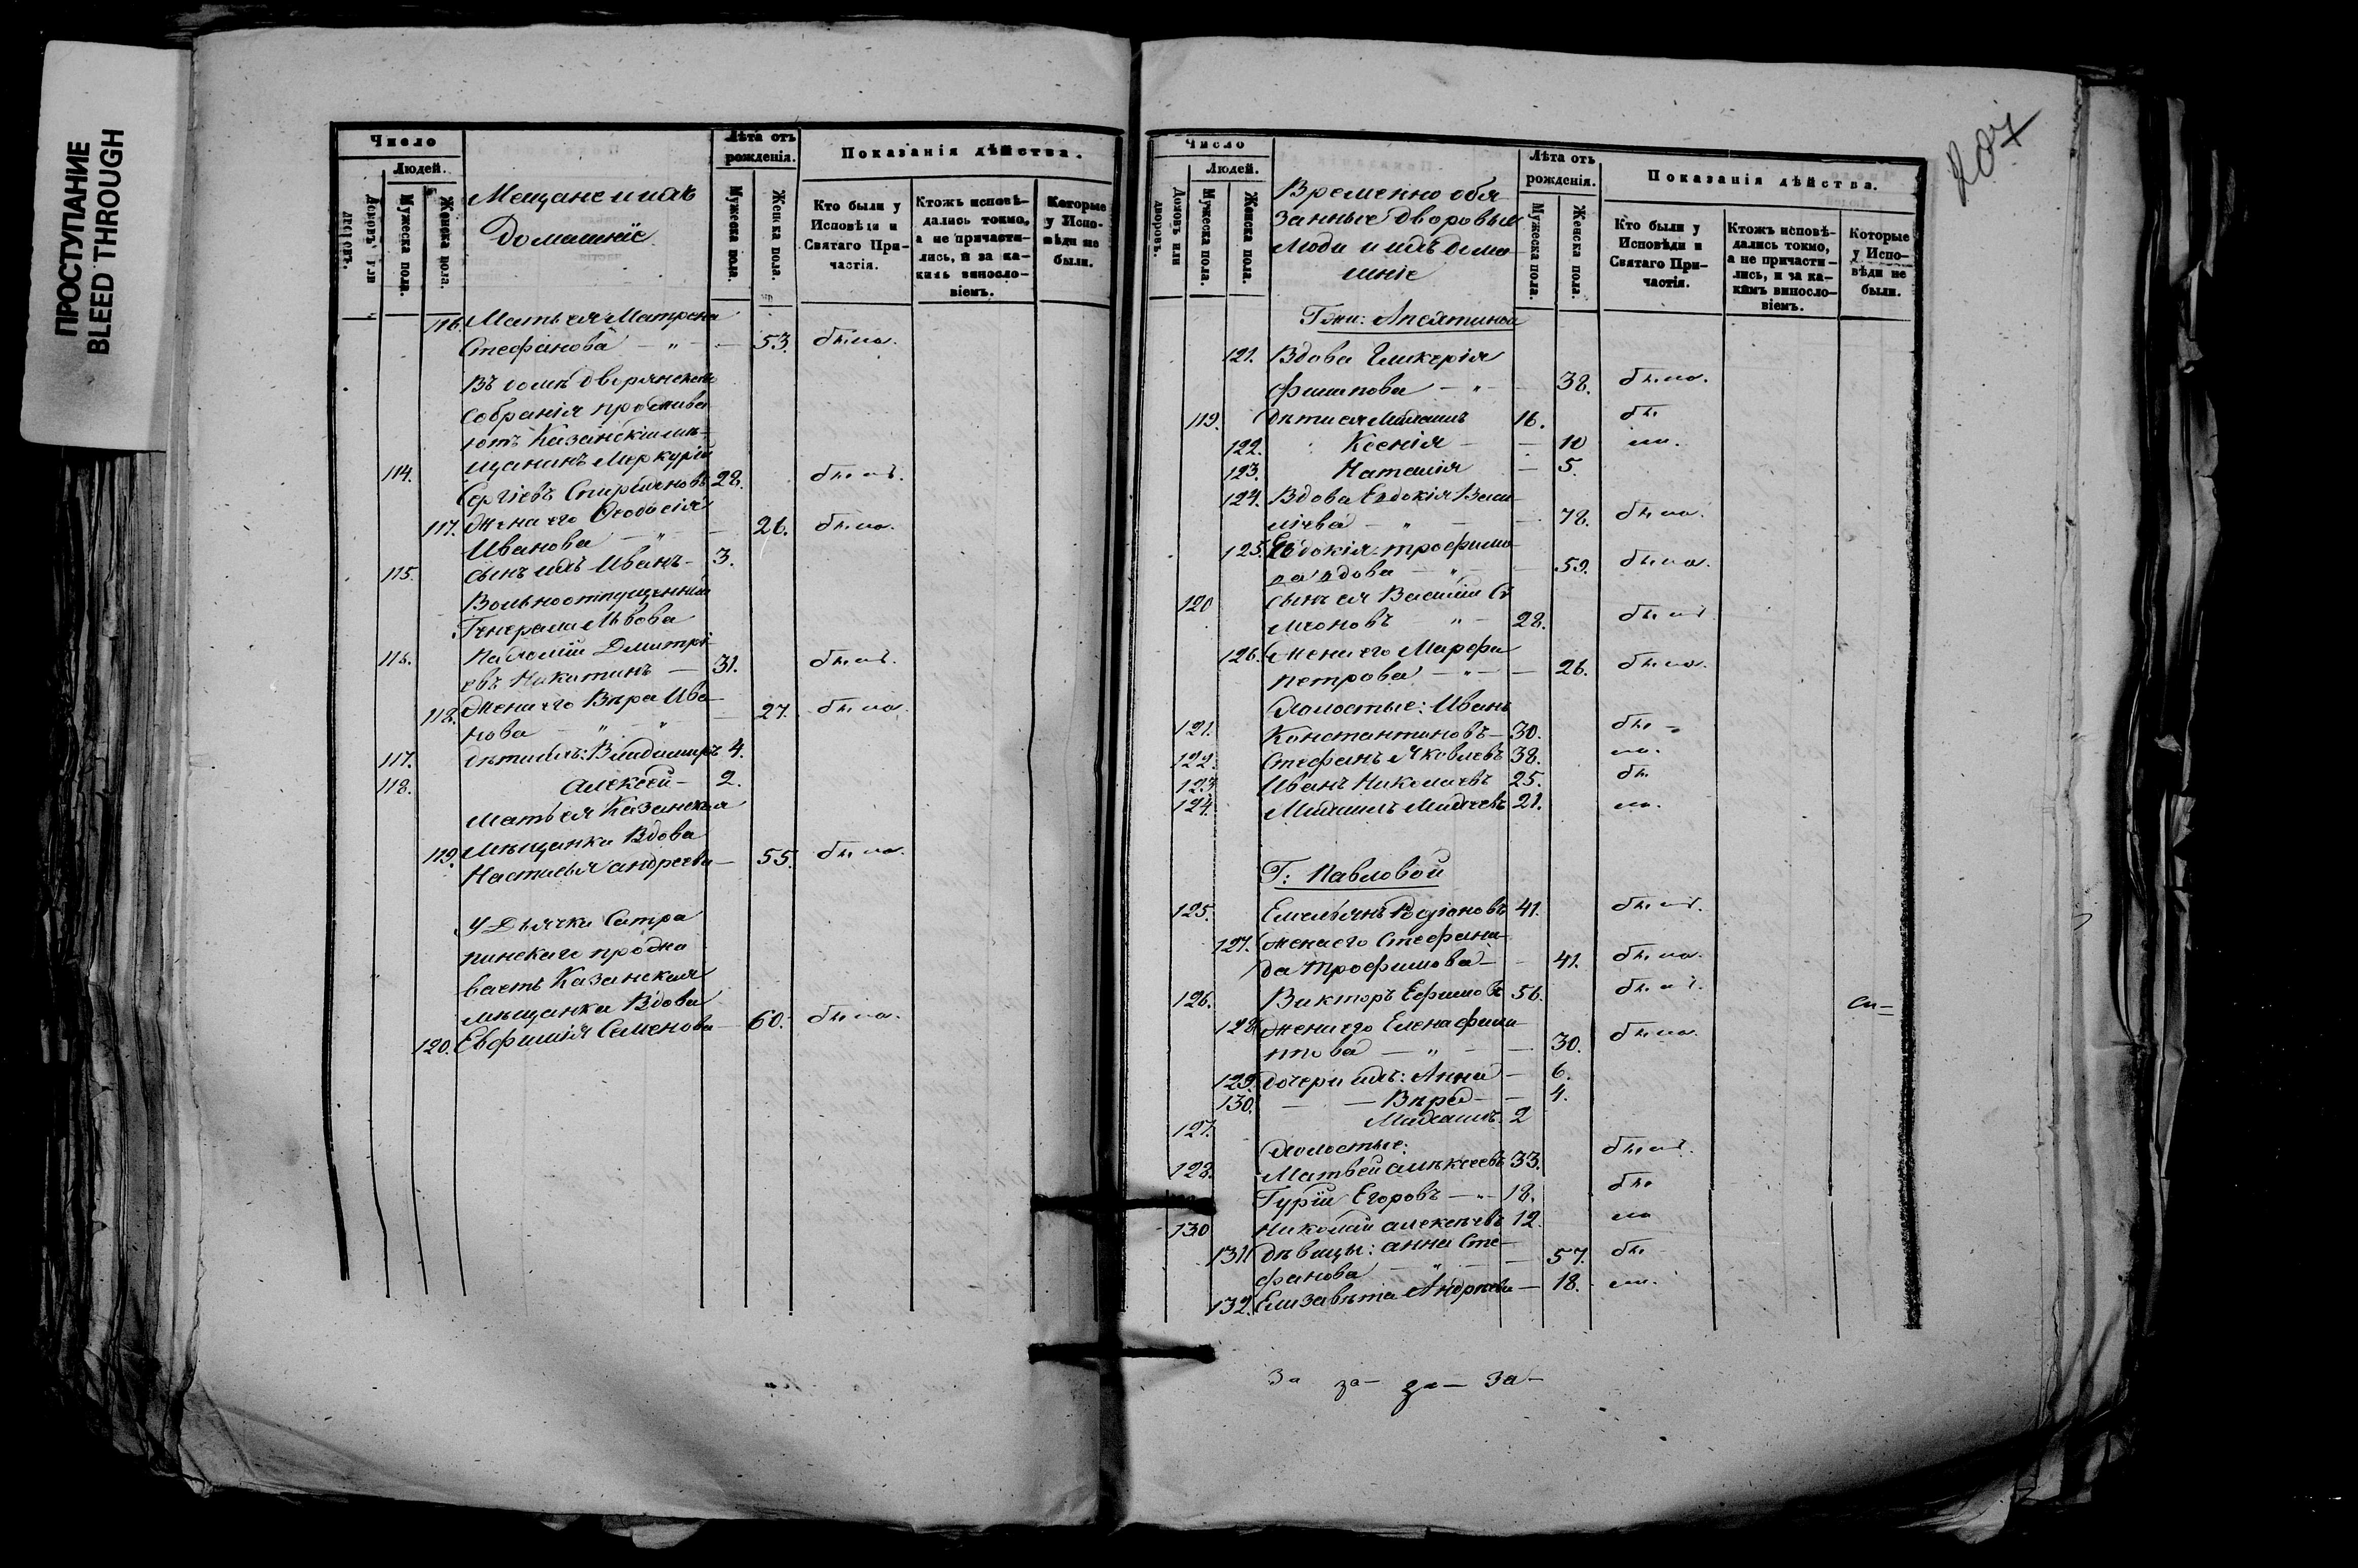 ПРОСТУПАНИЕ
BLEED THROUGH
Число
Людей.
Домовъ или дворовъ.
Мужеска пола.
Женска пола.
Мещане и ихъ
Домашніе
Лѣта отъ
рожденія.
Мужеска пола.
Женска пола.
Показанія дѣйства.
Кто были у
Исповѣди и
Святаго При-
частія.
Ктожъ исповѣ-
дались токмо,
а не причасти-
лись, и за ка-
кимъ винослo-
віемъ.
Которые
у Испо-
вѣди не
были.
116. Мать ея Матрена
Стефанова — „ — 53. была.
Въ домѣ дворянскаго
собранія прожива
ютъ Казанскій мѣ-
114. щанинъ Меркурій
Сергіевъ 28. былъ.
117. Жена его Феодосія
Иванова — „ — 26. была.
115. сынъ ихъ Иванъ — 3.
Вольноотпущенный
Генерала Львова
116. Дмитрі-
евъ Никитинъ — 31. былъ.
118. Жена его Вѣра Ива-
нова „ „ — 27. была.
117. дѣти ихъ: Владимиръ 4.
118. Алексей — 2.
Мать ея Казанская
мѣщанка Вдова
119. Настасья Андреева — 55. была.
У Дьячка
прожи
ваетъ Казанская
мѣщанка Вдова
120. Евфимія Семенова — 60. была.
207
Число
Людей.
Домовъ или дворовъ.
Мужеска пола.
Женска пола.
Временно обя
занные дворовые
люди и ихъ дома
шніе
Лѣта отъ
рожденія.
Мужеска пола.
Женска пола.
Показанія дѣйства.
Кто были у
Исповѣди и
Святаго При-
частія.
Ктожъ исповѣ-
дались токмо,
а не причасти-
лись, и за ка-
кимъ винослo-
віемъ.
Которые
у Испо-
вѣди не
были.
121. Вдова Гликерія
Филипова — „ — 38. была.
119. дѣти ея Михаилъ 16. бы
122. Ксенія — — 10 ли.
123. Наталія — 5.
124. Вдова Евдокія Васи-
ліева — „ — 78. была.
125. Евдокія Трофимо
ва вдова — „ — 59. была.
120 сынъ ея Василій Си
меоновъ „ — 28. былъ
126. Жена его Марфа
Петрова — „ — 26. была.
Холостые: Иванъ
121. Константиновъ — 30. бы =
122. Стефанъ Яковлевъ 38. ли.
123 Иванъ Николаевъ 25. бы
124. Михаилъ 21. ли.
Г: Павловой
125. Емельянъ Родіоновъ 41. былъ.
127. Жена его Стефани-
да Трофимова — — 41. была.
126. Викторъ Ефимовъ 56. былъ.
128. Жена его Елена Фили
ппова — „ — 30. была.
129. дочери ихъ: Анна — 6.
130. — — Вѣра — — 4.
127. Михаилъ. 2
Холостые:
128. Матвей Алексеевъ 33. былъ.
Гурій Егоровъ — „ — 18. бы
130 Николай Алексѣевъ 12. ли
131 дѣвицы: Анна Сте-
фанова — „ — 57. бы
132. Елизавета Андреева — 18. ли.
За за — за — за —